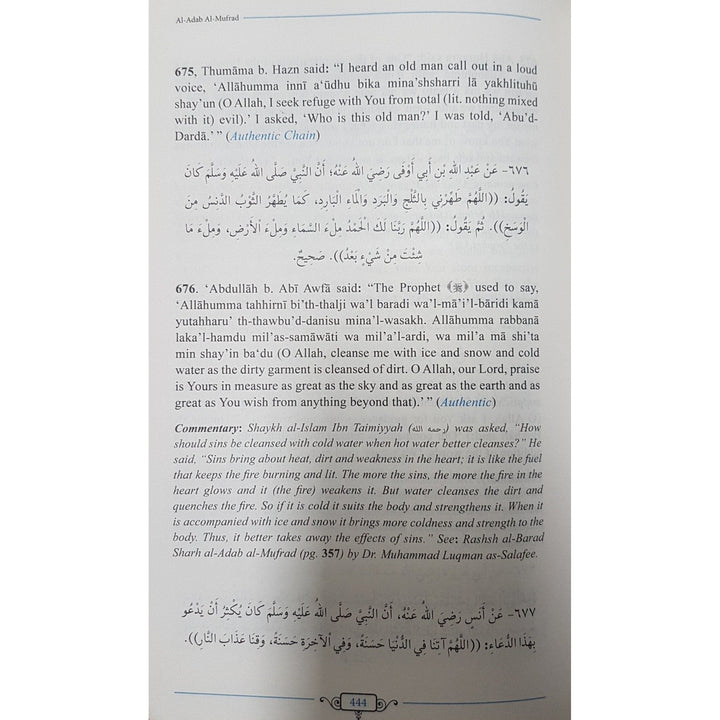 Al-Adab Al-Mufrad
675. Thumāma b. Hazn said: “I heard an old man call out in a loud
voice, ‘Allāhumma innī a‘ūdhu bika mina’shsharri lā yakhlituhū
shay’un (O Allah, I seek refuge with You from total (lit. nothing mixed
with it) evil).’ I asked, ‘Who is this old man?’ I was told, ‘Abu’d-
Dardā.’ ” (Authentic Chain)
٦٧٦- عَنْ عَبْدِ اللهِ بْنِ أَبِي أَوْفَى رَضِيَ اللهُ عَنْهُ؛ أَنَّ النَّبِيَّ صَلَّى اللهُ عَلَيْهِ وَسَلَّمَ كَانَ
يَقُولُ: ((اللَّهُمَّ طَهِّرْنِي بِالثَّلْجِ وَالْبَرَدِ وَالْمَاءِ الْبَارِدِ، كَمَا يُطَهَّرُ الثَّوْبُ الدَّنِسُ مِنَ
الْوَسَخِ)). ثُمَّ يَقُولُ: ((اللَّهُمَّ رَبَّنَا لَكَ الْحَمْدُ مِلْءَ السَّمَاءِ وَمِلْءَ الْأَرْضِ، وَمِلْءَ مَا
شِئْتَ مِنْ شَيْءٍ بَعْدُ)). صَحِيحٌ.
676. ‘Abdullāh b. Abī Awfā said: “The Prophet ﷺ used to say,
‘Allāhumma tahhirnī bi’th-thalji wa’l baradi wa’l-mā’i’l-bāridi kamā
yutahharu’ th-thawbu’d-danisu mina’l-wasakh. Allāhumma rabbanā
laka’l-hamdu mil’as-samāwāti wa mil’a’l-ardi, wa mil’a mā shi’ta
min shay’in ba‘du (O Allah, cleanse me with ice and snow and cold
water as the dirty garment is cleansed of dirt. O Allah, our Lord, praise
is Yours in measure as great as the sky and as great as the earth and as
great as You wish from anything beyond that).’ ” (Authentic)
Commentary: Shaykh al-Islam Ibn Taimiyyah (رحمه الله) was asked, “How
should sins be cleansed with cold water when hot water better cleanses?” He
said, “Sins bring about heat, dirt and weakness in the heart; it is like the fuel
that keeps the fire burning and lit. The more the sins, the more the fire in the
heart glows and it (the fire) weakens it. But water cleanses the dirt and
quenches the fire. So if it is cold it suits the body and strengthens it. When it
is accompanied with ice and snow it brings more coldness and strength to the
body. Thus, it better takes away the effects of sins.” See: Rashsh al-Barad
Sharh al-Adab al-Mufrad (pg. 357) by Dr. Muhammad Luqman as-Salafee.
٦٧٧- عَنْ أَنَسٍ رَضِيَ اللهُ عَنْهُ، أَنَّ النَّبِيَّ صَلَّى اللهُ عَلَيْهِ وَسَلَّمَ كَانَ يُكْثِرُ أَنْ يَدْعُوَ
بِهَذَا الدُّعَاءِ: ((اللَّهُمَّ آتِنَا فِي الدُّنْيَا حَسَنَةً، وَفِي الْآخِرَةِ حَسَنَةً، وَقِنَا عَذَابَ النَّارِ)).
444